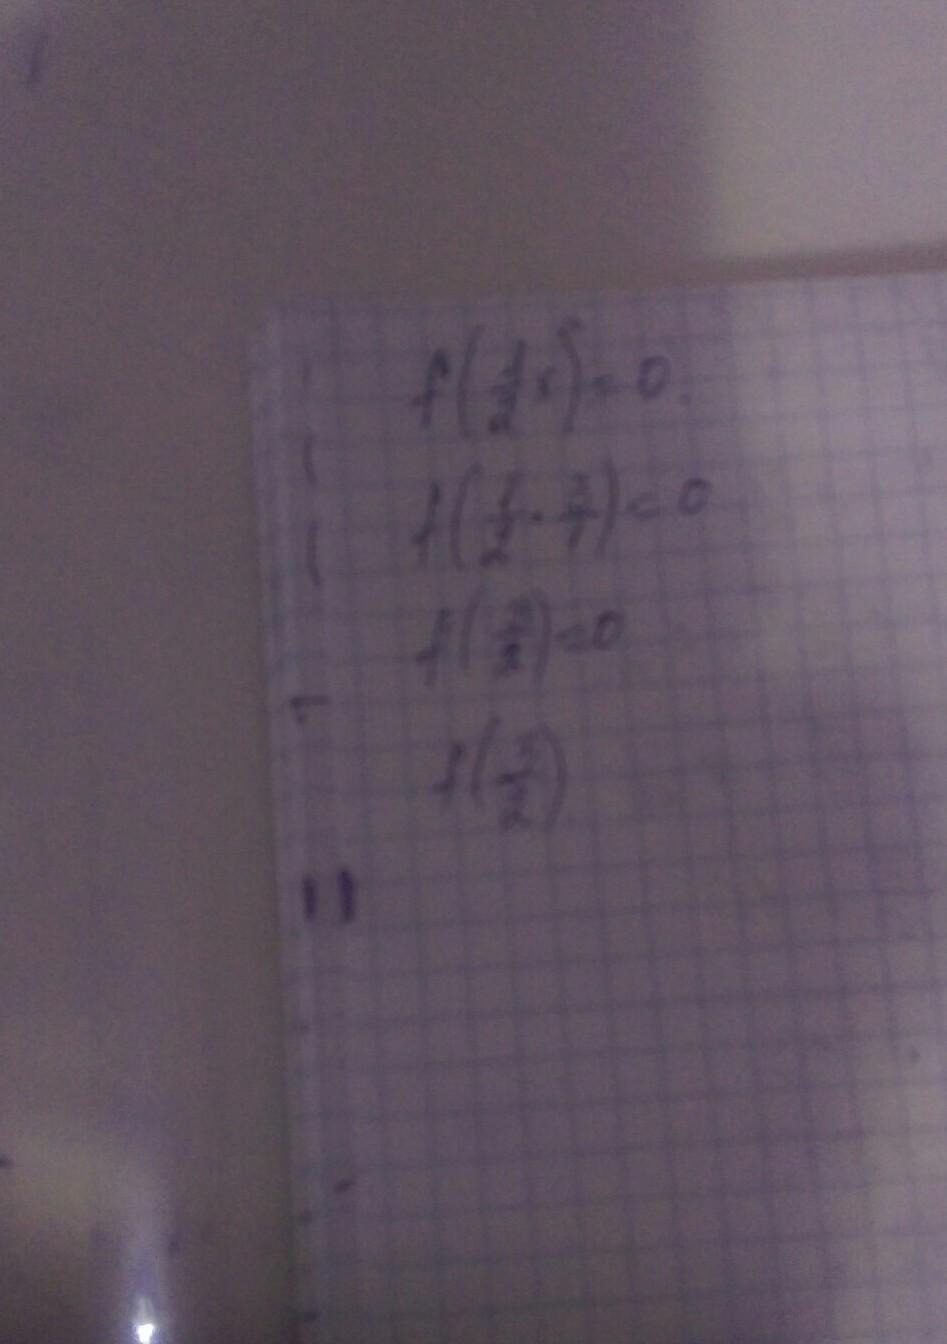 f(1/2 x) = 0.
f(1/2 · 3/1) = 0
f(3/2) = 0
f(3/2)